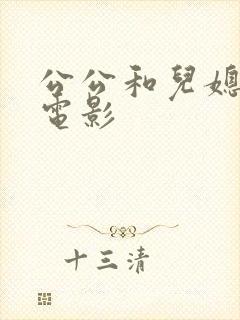 公公和兒媳
電影
十三清